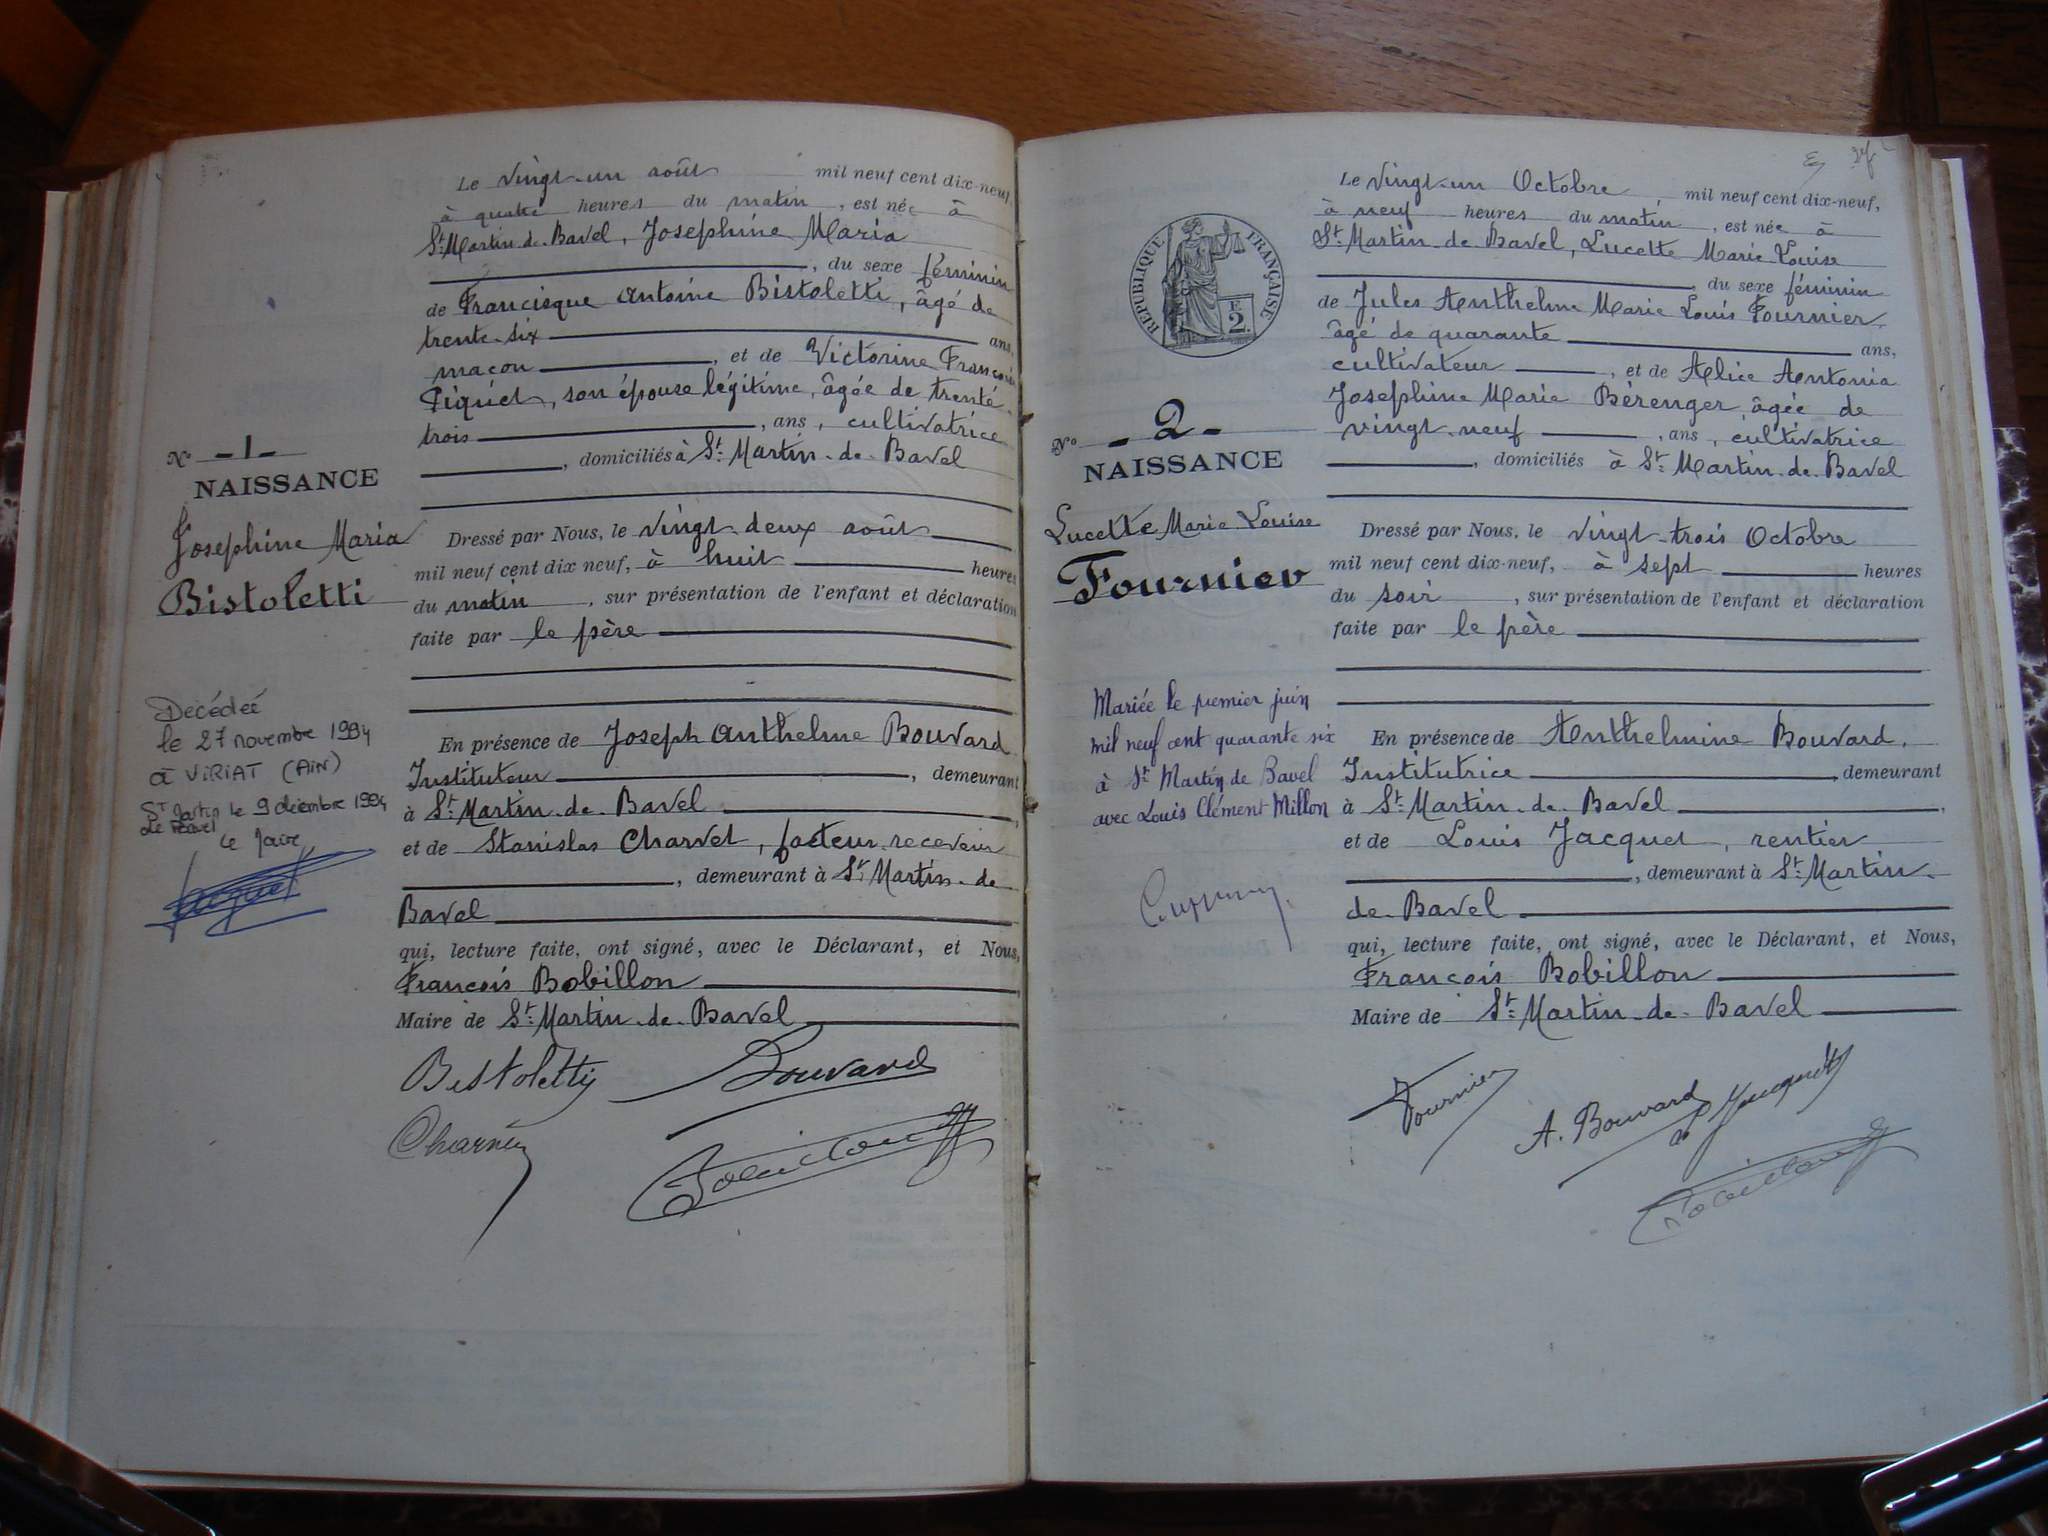 Le vingt-un août mil neuf cent dix-neuf,
à quatre heures du matin, est née à
St Martin-de-Bavel, Josephine Maria
, du sexe féminin
de Francisque Antoine Bistoletti, âgé de
trente-six ans,
maçon, et de Victorine
Piquet, son épouse légitime, âgée de trente-
trois, ans, cultivatrice
, domiciliés à St Martin-de-Bavel
No -1-
NAISSANCE
Josephine Maria
Bistoletti
Dressé par Nous, le vingt-deux août
mil neuf cent dix neuf, à huit heures
du matin, sur présentation de l'enfant et déclaration
faite par le père
Décédée
le 27 novembre 1994
à VIRIAT (AIN)
St Martin le 9 décembre 1994
de Bavel
le Maire,
Jacquet
En présence de Joseph Anthelme Bouvard
Instituteur, demeurant
à St Martin-de-Bavel,
et de Stanislas Charvet, facteur-receveur
, demeurant à St Martin-de
Bavel
qui, lecture faite, ont signé, avec le Déclarant, et Nous,
François Bobillon,
Maire de St Martin-de-Bavel
Bistoletti Bouvard
Charvet Bobillon
RÉPUBLIQUE FRANÇAISE
F.
2.
Le vingt-un Octobre mil neuf cent dix-neuf,
à neuf heures du matin, est née à
St Martin-de Bavel, Lucette Marie Louise
, du sexe féminin
de Jules Anthelme Marie Louis Fournier,
âgé de quarante ans,
cultivateur, et de Alice Antonia
Josephine Marie Bérenger, âgée de
vingt-neuf, ans, cultivatrice
, domiciliés à St Martin-de-Bavel
No -2-
NAISSANCE
Lucette Marie Louise
Fournier
Dressé par Nous, le vingt-trois Octobre
mil neuf cent dix-neuf, à sept heures
du soir, sur présentation de l'enfant et déclaration
faite par le père
Mariée le premier juin
mil neuf cent quarante six
à St Martin de Bavel
avec Louis Clément Millon
En présence de Anthelmine Bouvard,
Institutrice, demeurant
à St Martin-de-Bavel,
et de Louis Jacquet, rentier
, demeurant à St Martin-
de-Bavel
qui, lecture faite, ont signé, avec le Déclarant, et Nous,
François Bobillon
Maire de St Martin-de-Bavel
Fournier A. Bouvard Jacquet
Bobillon